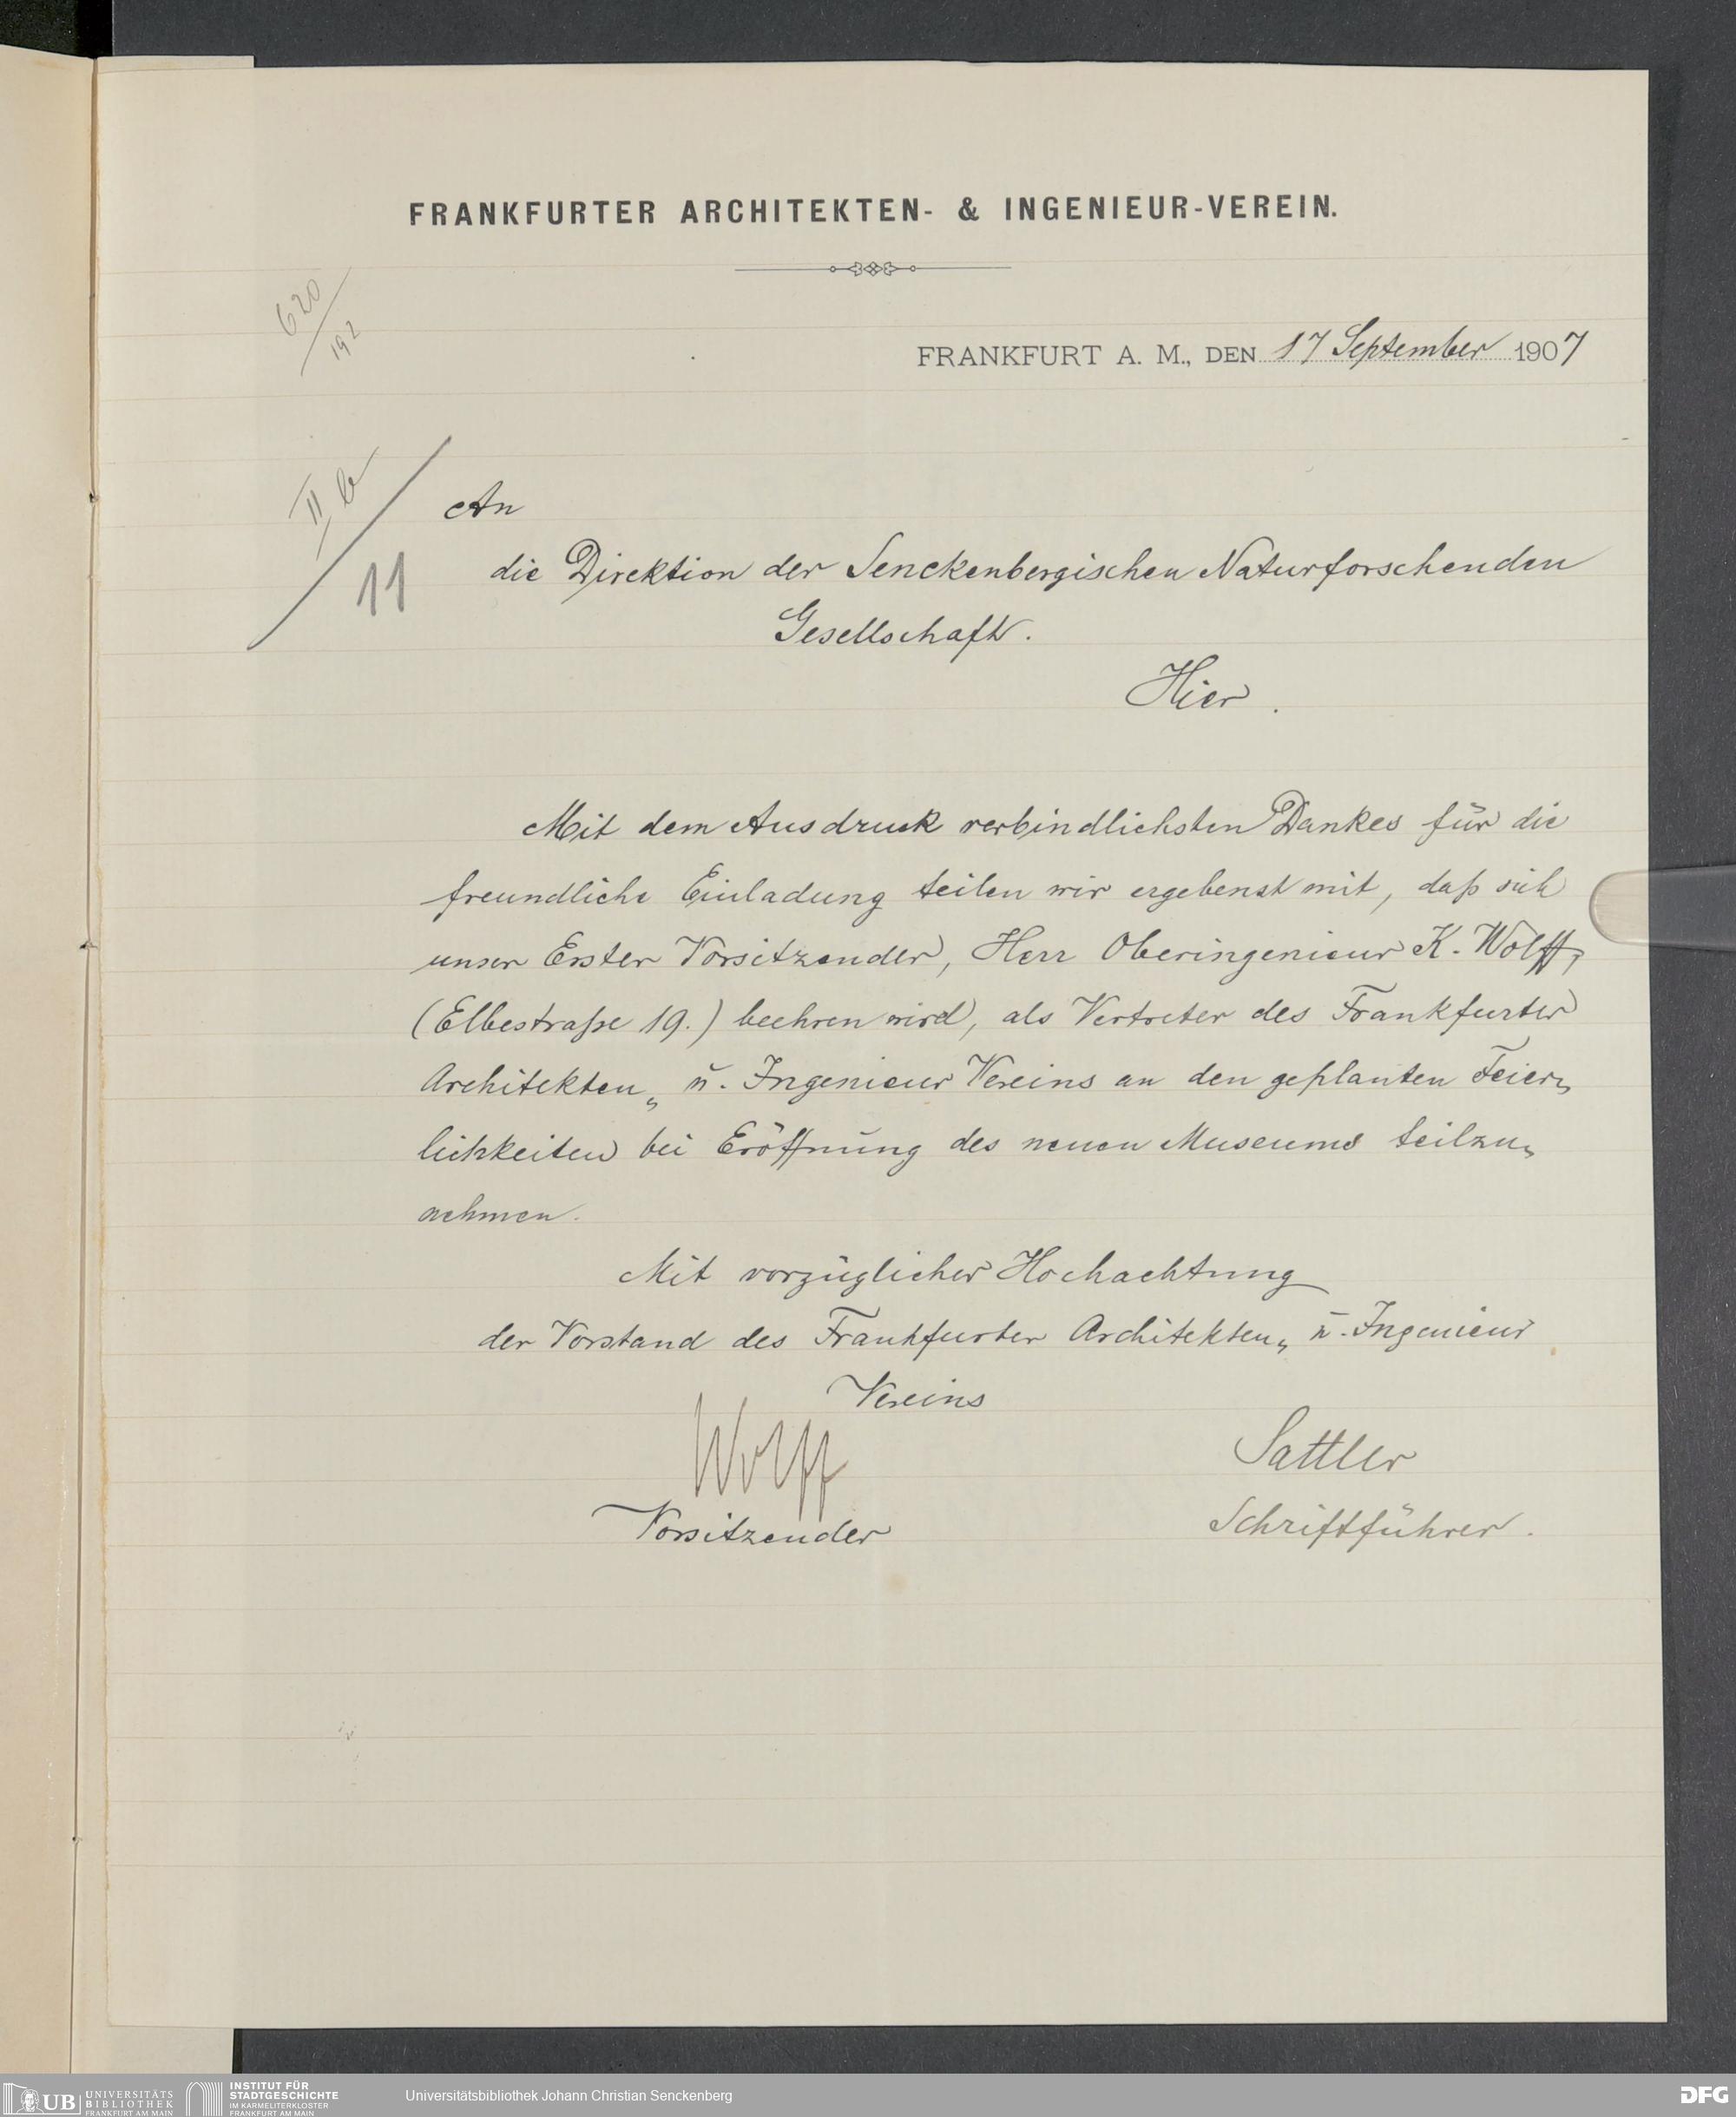 FRANKFURTER ARCHITEKTEN- & INGENIEUR-VEREIN.
620/192
FRANKFURT A. M., DEN 17 September 1907
II b
11
An
die Direktion der Senckenbergischen Naturforschenden
Gesellschaft.
Hier.
Mit dem Ausdruck verbindlichsten Dankes für die
freundliche Einladung teilen wir ergebenst mit, daß sich
unser Erster Vorsitzender, Herr Oberingenieur K. Wolff,
(Elbestraße 19.) beehren wird, als Vertreter des Frankfurter
Architekten- u. Ingenieur Vereins an den geplanten Feier-
lichkeiten bei Eröffnung des neuen Museums teilzu-
nehmen.
Mit vorzüglicher Hochachtung
der Vorstand des Frankfurter Architekten- u. Ingenieur
Vereins
Wolff
Vorsitzender
Sattler
Schriftführer.
UB UNIVERSITÄTS
BIBLIOTHEK
FRANKFURT AM MAIN
INSTITUT FÜR
STADTGESCHICHTE
IM KARMELITERKLOSTER
FRANKFURT AM MAIN
Universitätsbibliothek Johann Christian Senckenberg
DFG